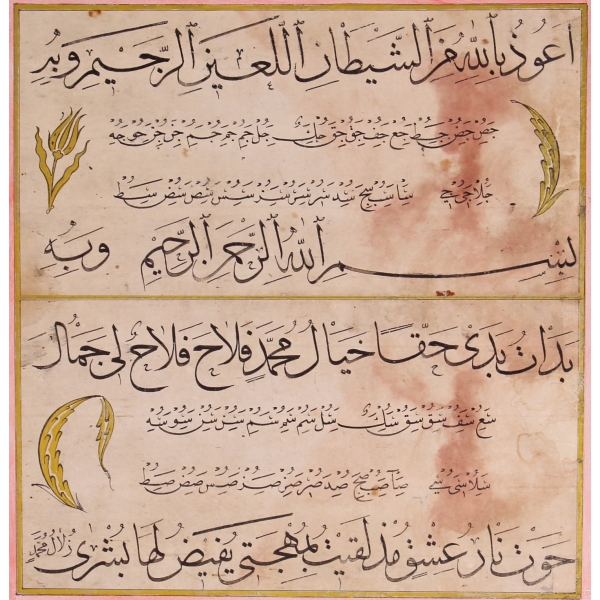 اعوذ بالله من الشيطان اللعين الرجيم وبه
جص جض جط جع جف جق جك جل جم جم جم جن جن جو جه
جلا جى جي سا سب سج سد سر سس سص سض سط
بسم الله الرحمن الرحيم وبه
بدات بدى حقا خيال محمد فلاح فلاح لى جمال
سع سف سق سك سل سم سم سم سن سن سو سه
سلا سى سي صا صب صح صد صر صس صص صط
حوت نار عشق مذ لقيت بمهجتي يفيض لها بشرى زلال محمد